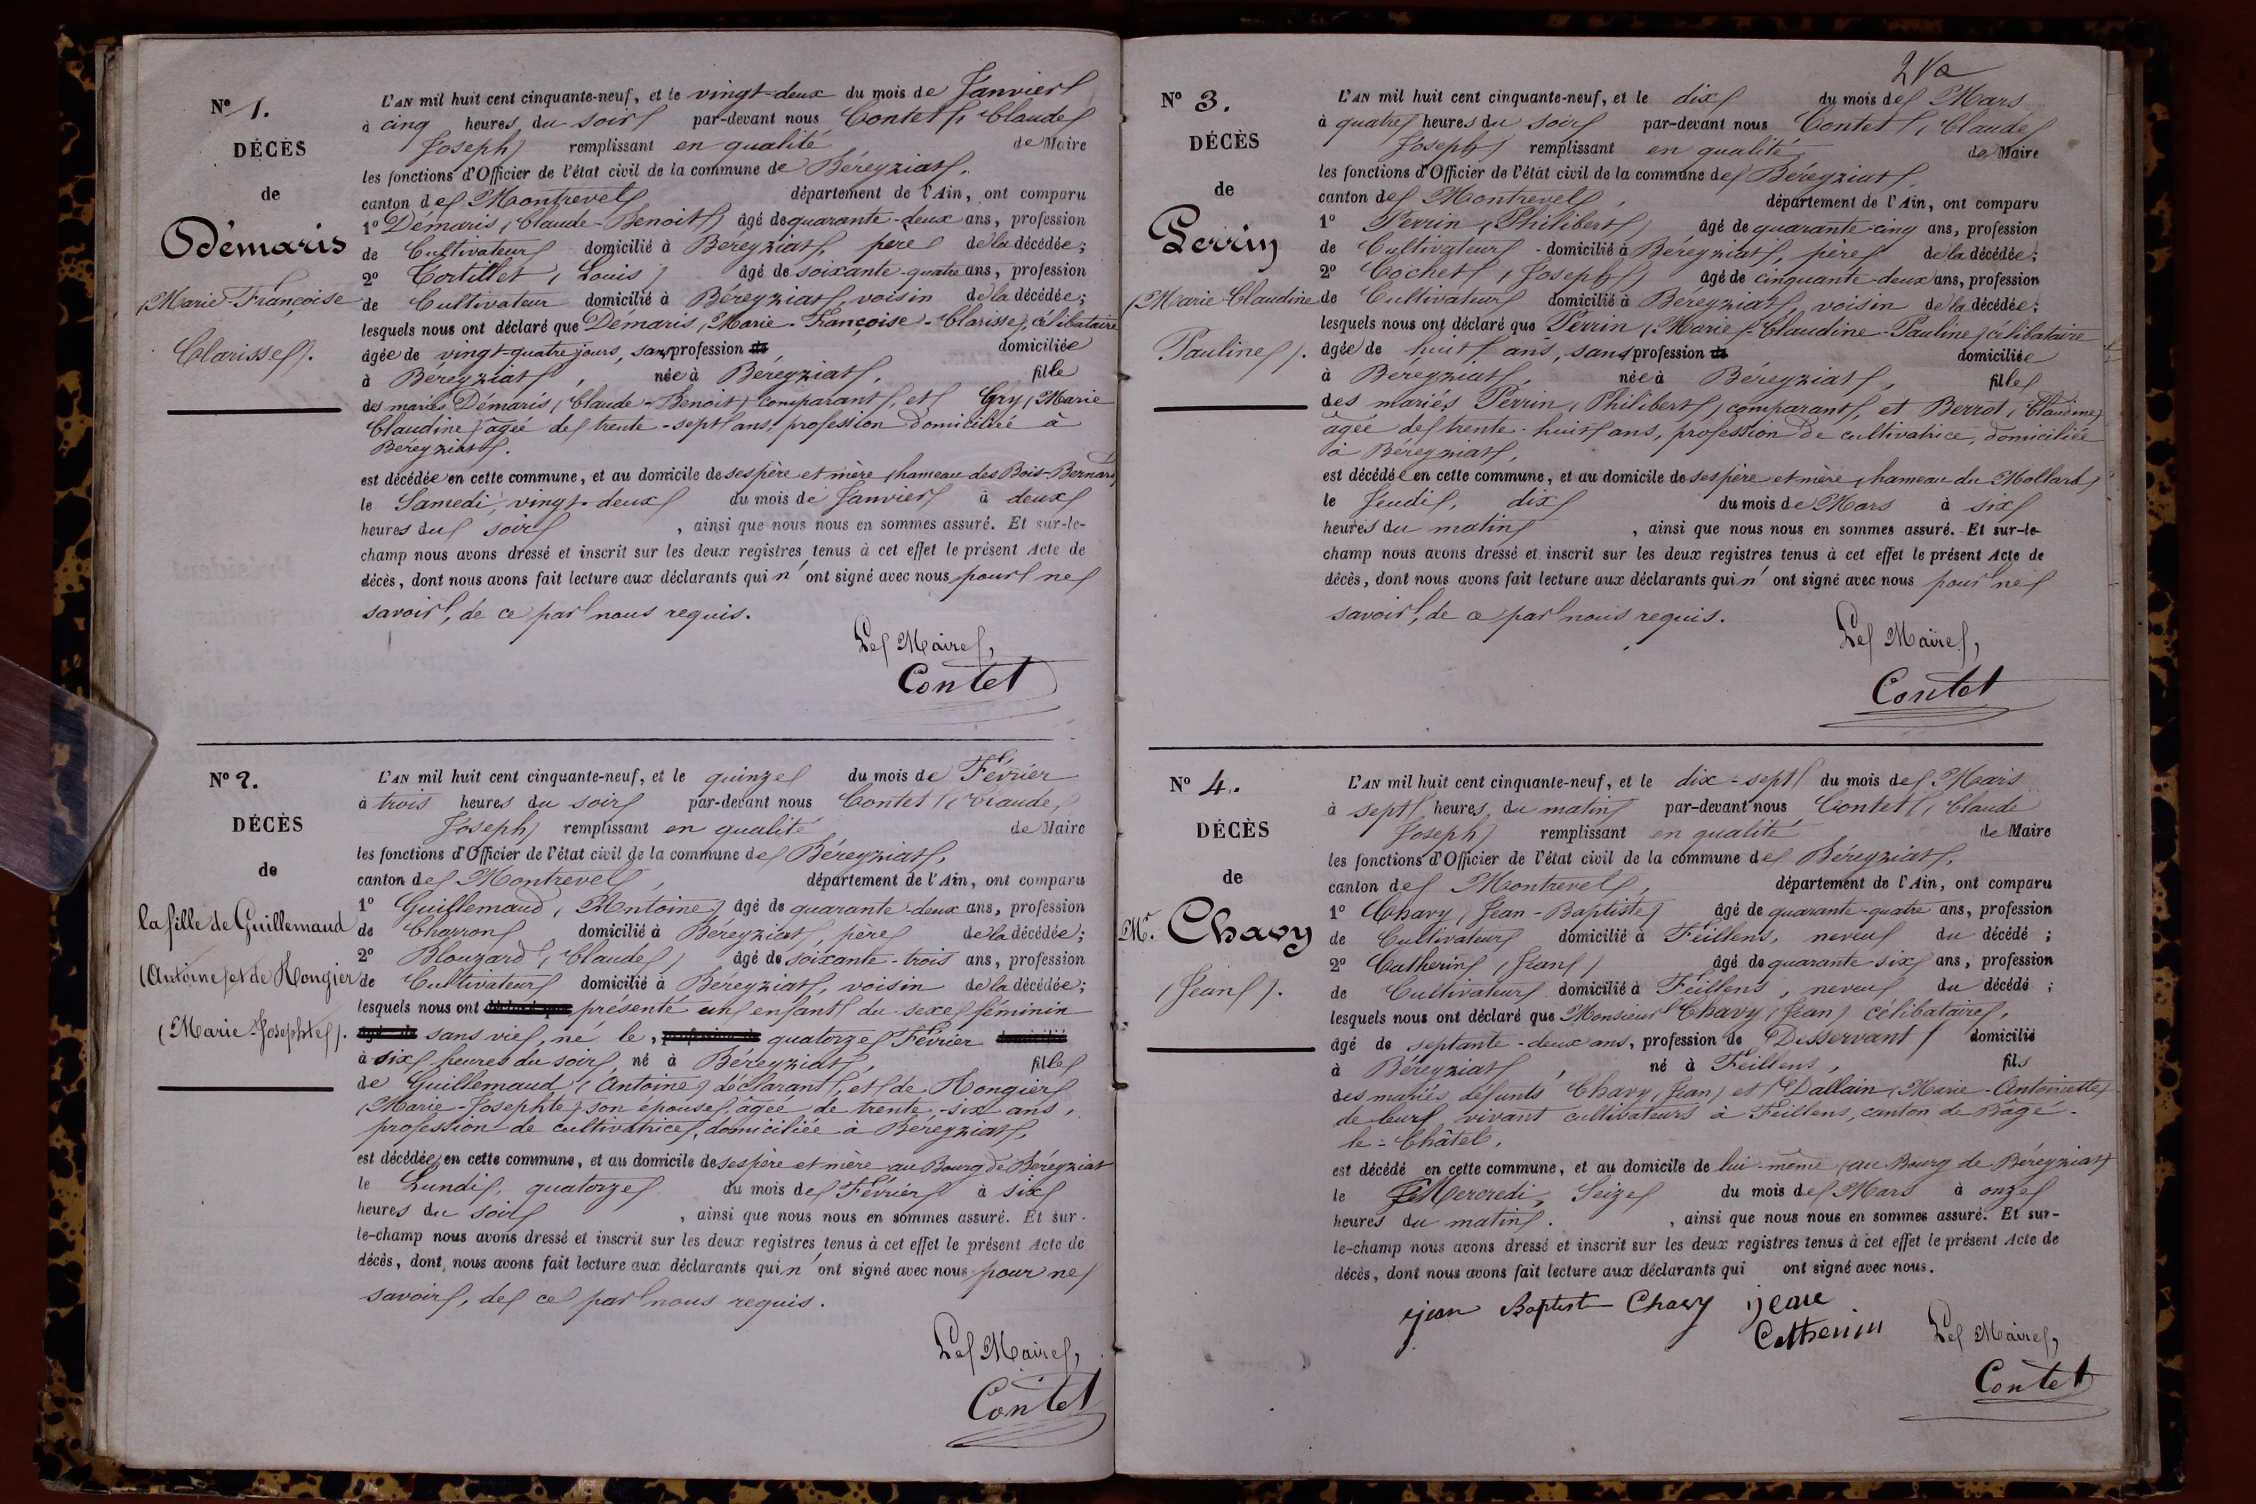 N° 1.
DÉCÈS
de
Démaris
(Marie-Françoise
Clarisse).
L'AN mil huit cent cinquante-neuf, et le vingt-deux du mois de Janvier
à cinq heures du soir par-devant nous Contet (Claude
Joseph) remplissant en qualité de Maire
les fonctions d'Officier de l'état civil de la commune de Béreyziat,
canton de Montrevel département de l'Ain, ont comparu
1° Démaris (Claude-Benoit) âgé de quarante-deux ans, profession
de Cultivateur domicilié à Béreyziat, père de la décédée;
2° Tortillet (Louis) âgé de soixante-quatre ans, profession
de Cultivateur domicilié à Béreyziat, voisin de la décédée;
lesquels nous ont déclaré que Démaris (Marie-Françoise-Clarisse), célibataire
âgée de vingt-quatre jours, sans profession de domiciliée
à Béreyziat, née à Béreyziat, fille
des mariés Démaris (Claude-Benoit) comparant, et Gry (Marie
Claudine) agée de trente-sept ans, profession domiciliée à
Béreyziat.
est décédée en cette commune, et au domicile de ses père et mère, hameau des Bois-Bernard
le Samedi, vingt-deux du mois de Janvier à deux
heures du soir, ainsi que nous nous en sommes assuré. Et sur-le-
champ nous avons dressé et inscrit sur les deux registres tenus à cet effet le présent Acte de
décès, dont nous avons fait lecture aux déclarants qui n'ont signé avec nous pour ne
savoir, de ce par nous requis.
Le Maire,
Contet
N° 2.
DÉCÈS
de
la fille de Guillemaud
(Antoine) et de Rongier
(Marie-Josephte).
L'AN mil huit cent cinquante-neuf, et le quinze du mois de Février
à trois heures du soir par-devant nous Contet (Claude
Joseph) remplissant en qualité de Maire
les fonctions d'Officier de l'état civil de la commune de Béreyziat,
canton de Montrevel, département de l'Ain, ont comparu
1° Guillemaud (Antoine) âgé de quarante-deux ans, profession
de Charron domicilié à Béreyziat, père de la décédée;
2° Blouzard (Claude) âgé de soixante-trois ans, profession
de Cultivateur domicilié à Béreyziat, voisin de la décédée;
lesquels nous ont présenté un enfant du sexe féminin
sans vie, né le, quatorze Février
à six heures du soir, né à Béreyziat, fille
de Guillemaud (Antoine) déclarant, et de Rongier
(Marie-Josephte) son épouse, âgée de trente-six ans,
profession de cultivatrice, domiciliée à Béreyziat,
est décédée en cette commune, et au domicile de ses père et mère au Bourg de Béreyziat
le Lundi, quatorze du mois de Février à six
heures du soir, ainsi que nous nous en sommes assuré. Et sur-
le-champ nous avons dressé et inscrit sur les deux registres tenus à cet effet le présent Acte de
décès, dont nous avons fait lecture aux déclarants qui n'ont signé avec nous pour ne
savoir, de ce par nous requis.
Le Maire,
Contet
N° 3.
DÉCÈS
de
Perrin
(Marie Claudine
Pauline).
L'AN mil huit cent cinquante-neuf, et le dix du mois de Mars
à quatre heures du soir par-devant nous Contet (Claude
Joseph) remplissant en qualité de Maire
les fonctions d'Officier de l'état civil de la commune de Béreyziat,
canton de Montrevel, département de l'Ain, ont comparu
1° Perrin (Philibert) âgé de quarante-cinq ans, profession
de Cultivateur domicilié à Béreyziat, père de la décédée;
2° Cochet (Joseph) âgé de cinquante-deux ans, profession
de Cultivateur domicilié à Béreyziat, voisin de la décédée;
lesquels nous ont déclaré que Perrin (Marie-Claudine-Pauline) célibataire
âgée de huit ans, sans profession de domiciliée
à Béreyziat, née à Béreyziat, fille
des mariés Perrin (Philibert) comparant, et Berrot (Claudine)
âgée de trente-huit ans, profession de cultivatrice, domiciliée
à Béreyziat,
est décédée en cette commune, et au domicile de ses père et mère (hameau du Mollard)
le Jeudi, dix du mois de Mars à six
heures du matin, ainsi que nous nous en sommes assuré. Et sur-le-
champ nous avons dressé et inscrit sur les deux registres tenus à cet effet le présent Acte de
décès, dont nous avons fait lecture aux déclarants qui n'ont signé avec nous pour ne
savoir, de ce par nous requis.
Le Maire,
Contet
N° 4.
DÉCÈS
de
Mr. Chavy
(Jean).
L'AN mil huit cent cinquante-neuf, et le dix-sept du mois de Mars
à sept heures du matin par-devant nous Contet (Claude
Joseph) remplissant en qualité de Maire
les fonctions d'Officier de l'état civil de la commune de Béreyziat,
canton de Montrevel, département de l'Ain, ont comparu
1° Chavy (Jean-Baptiste) âgé de quarante-quatre ans, profession
de Cultivateur domicilié à Feillens, neveu du décédé;
2° Catherin (Jean) âgé de quarante-six ans, profession
de Cultivateur domicilié à Feillens, neveu du décédé;
lesquels nous ont déclaré que Monsieur Chavy (Jean) célibataire,
âgé de septante-deux ans, profession de Desservant domicilié
à Béreyziat, né à Feillens, fils
des mariés défunts Chavy (Jean) et Dallain (Marie-Antoinette)
de leur vivant cultivateurs à Feillens, canton de Bagé-
le-Châtel,
est décédé en cette commune, et au domicile de lui-même (au Bourg de Béreyziat)
le Mercredi, Seize du mois de Mars à onze
heures du matin., ainsi que nous nous en sommes assuré. Et sur-
le-champ nous avons dressé et inscrit sur les deux registres tenus à cet effet le présent Acte de
décès, dont nous avons fait lecture aux déclarants qui ont signé avec nous.
jean Baptist Chavy jean
Catherin
Le Maire,
Contet